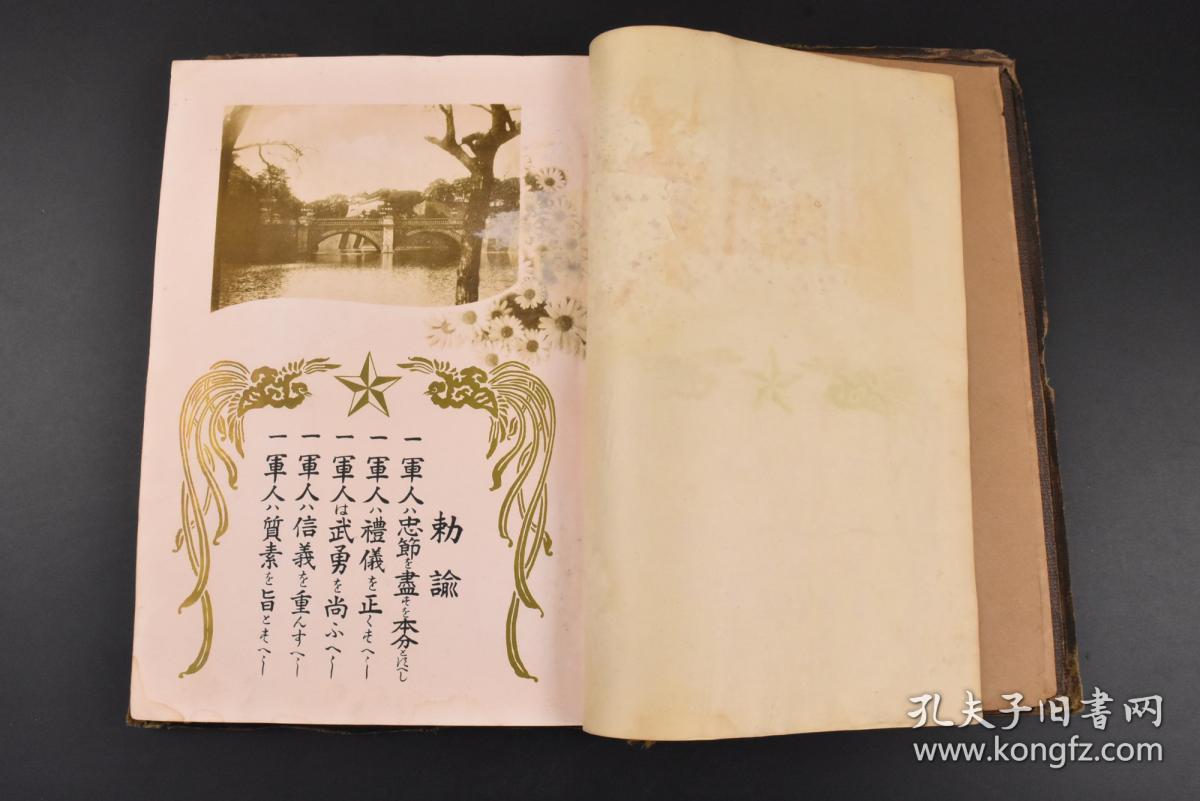 勅諭
一軍人ハ忠節を盡すを本分とすへし
一軍人ハ禮儀を正くすへし
一軍人は武勇を尚ふへし
一軍人ハ信義を重んすへし
一軍人ハ質素を旨とすへし
孔夫子旧書网
www.kongfz.com